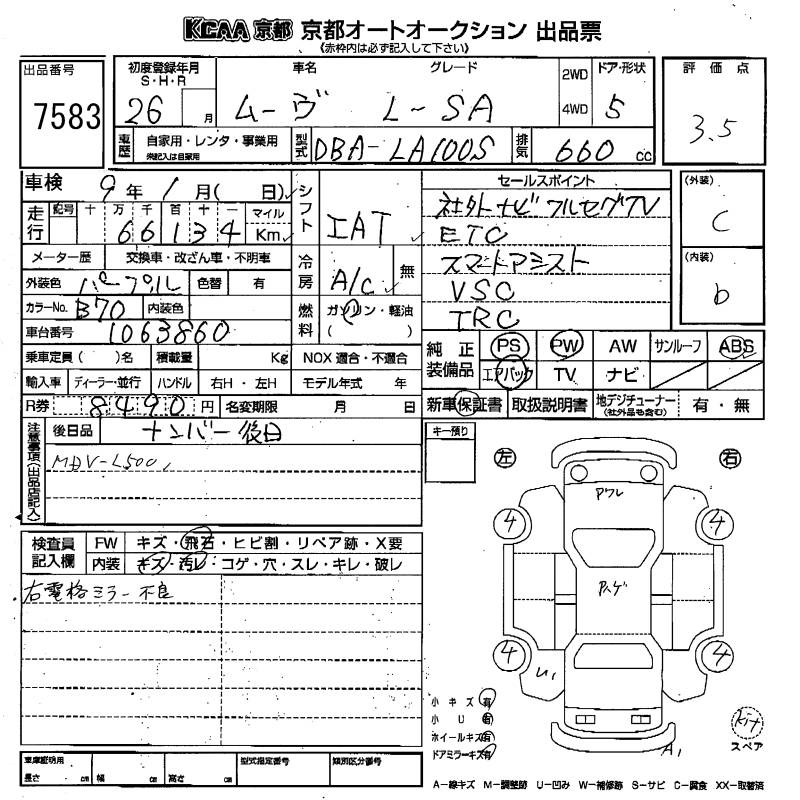 KCAA 京都 京都オートオークション 出品票
《赤枠内は必ず記入して下さい》
出品番号
7583
初度登録年月
S・H・R
26 月
車名
ムーヴ
グレード
L-SA
2WD
4WD
ドア・形状
5
評価点
3.5
車歴
自家用・レンタ・事業用
未記入は自家用
型式
DBA-LA100S
排気
660 cc
車検
9年1月( 日)
走行
記号 十 万 千 百 十 一
66134
マイル
Km
メーター歴 交換車・改ざん車・不明車
外装色 パープル 色替 有
カラーNo. B70 内装色
車台番号 1063860
乗車定員 ( )名 積載量 Kg
輸入車 ディーラー・並行 ハンドル 右H・左H
R券 8490 円 名変期限 月 日
シフト
IAT
冷房
A/C
無
燃料
ガソリン・軽油
( )
NOX 適合・不適合
モデル年式 年
セールスポイント
社外ナビ フルセグTV
ETC
スマートアシスト
VSC
TRC
(外装)
C
(内装)
D
純正装備品
PS PW AW サンルーフ ABS
エアバック TV ナビ
新車保証書 取扱説明書 地デジチューナー (社外品も含む) 有・無
注意事項(出品店記入)
後日品 ナンバー後日
MDV-L500
キー預り
検査員記入欄
FW キズ・飛石・ヒビ割・リペア跡・X要
内装 キズ・汚レ・コゲ・穴・スレ・キレ・破レ
右電格ミラー不良
左
右
アワレ
4
4
4
4
U1
A1
小キズ 有
小U 有
ホイールキズ 有
ドアミラーキズ 有
kit
スペア
車庫証明用
長さ cm 幅 cm 高さ cm
型式指定番号
類別区分番号
A-線キズ M-調整跡 U-凹み W-補修跡 S-サビ C-腐食 XX-取替済